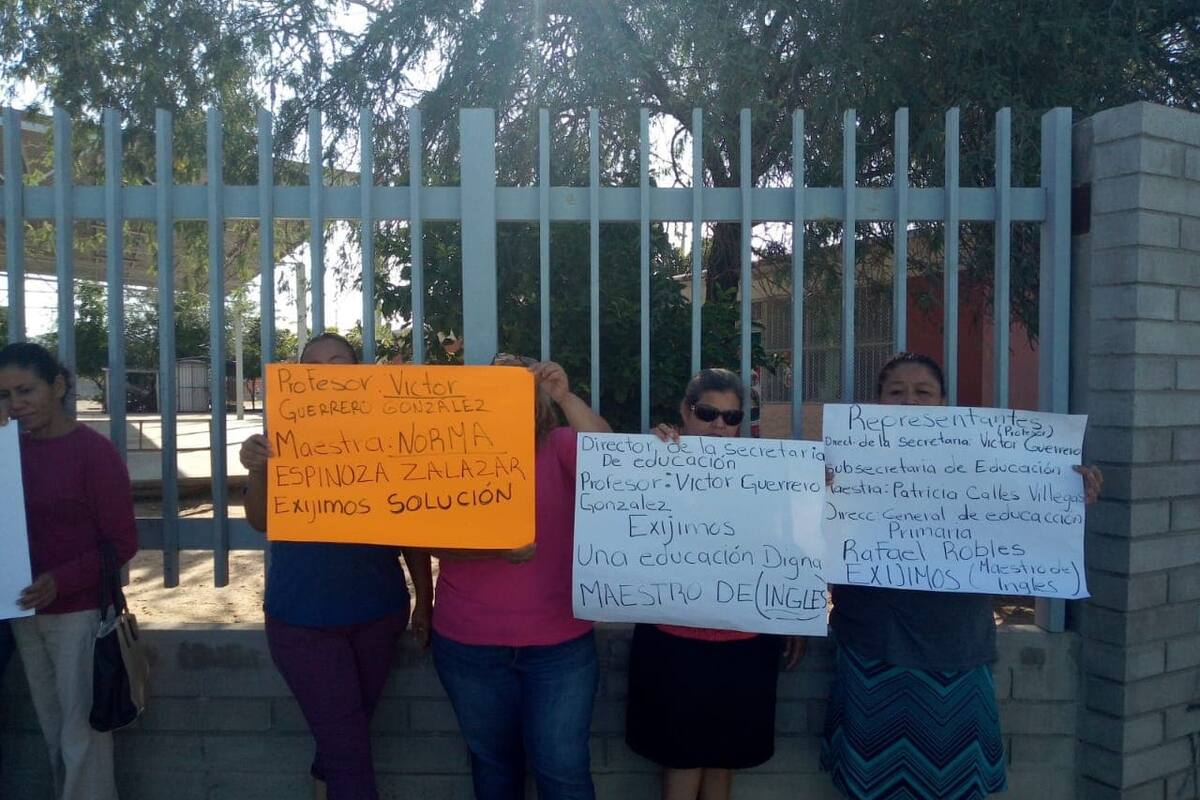 Profesor: Victor
Guerrero González
Maestra: NORMA
ESPINOZA ZALAZÁR
Exijimos SOLUCIÓN
Director de la secretaria
De educación
Profesor: Victor Guerrero
Gonzalez
Exijimos
Una educación Digna
MAESTRO DE (INGLES)
Representantes
(Profesor)
Direct: de la secretaria: Victor Guerrero
Subsecretaria de Educación
Maestra: Patricia Calles Villegas
Direcc: General de educacción
Primaria
Rafael Robles
EXIJIMOS (Maestro de)
Ingles